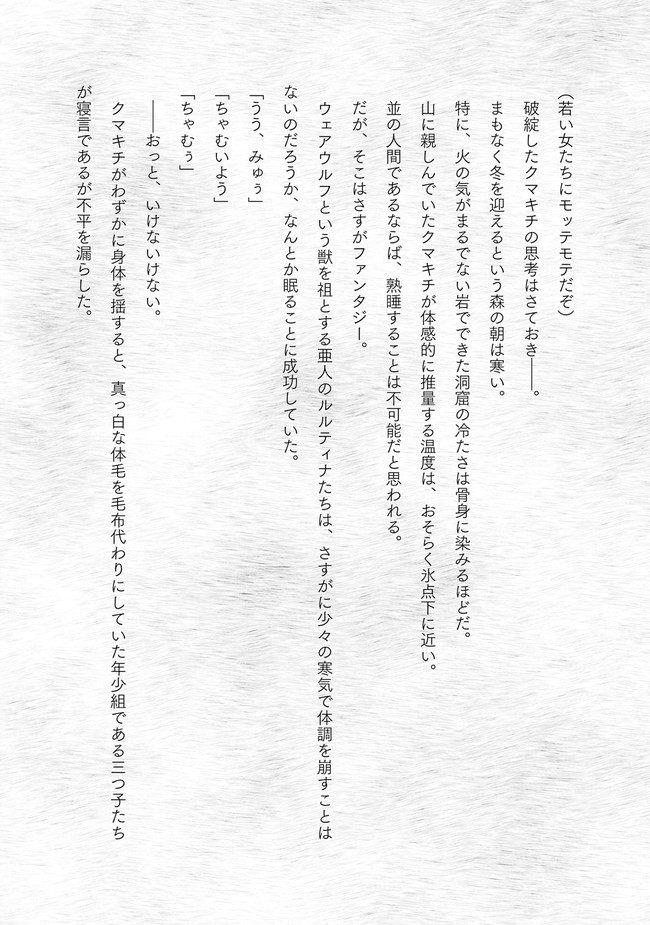 （若い女たちにモッテモテだぞ）
破綻したクマキチの思考はさておき――。
まもなく冬を迎えるという森の朝は寒い。
特に、火の気がまるでない岩でできた洞窟の冷たさは骨身に染みるほどだ。
山に親しんでいたクマキチが体感的に推量する温度は、おそらく氷点下に近い。
並の人間であるならば、熟睡することは不可能だと思われる。
だが、そこはさすがファンタジー。
ウェアウルフという獣を祖とする亜人のルルティナたちは、さすがに少々の寒気で体調を崩すことは
ないのだろうか、なんとか眠ることに成功していた。
「うう、みゅぅ」
「ちゃむいよう」
「ちゃむぅ」
――おっと、いけないいけない。
クマキチがわずかに身体を揺すると、真っ白な体毛を毛布代わりにしていた年少組である三つ子たち
が寝言であるが不平を漏らした。